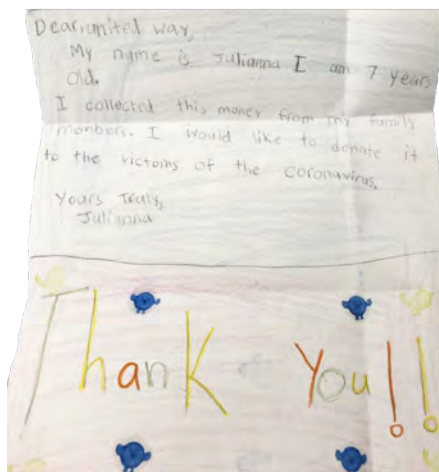 Dear,united way,
My name is Julianna I am 7 years
old.
I collected this money from my family
monbers. I would like to donate it
to the victoms of the coronavirus.
Yours Truly,
Julianna
Thank You!!